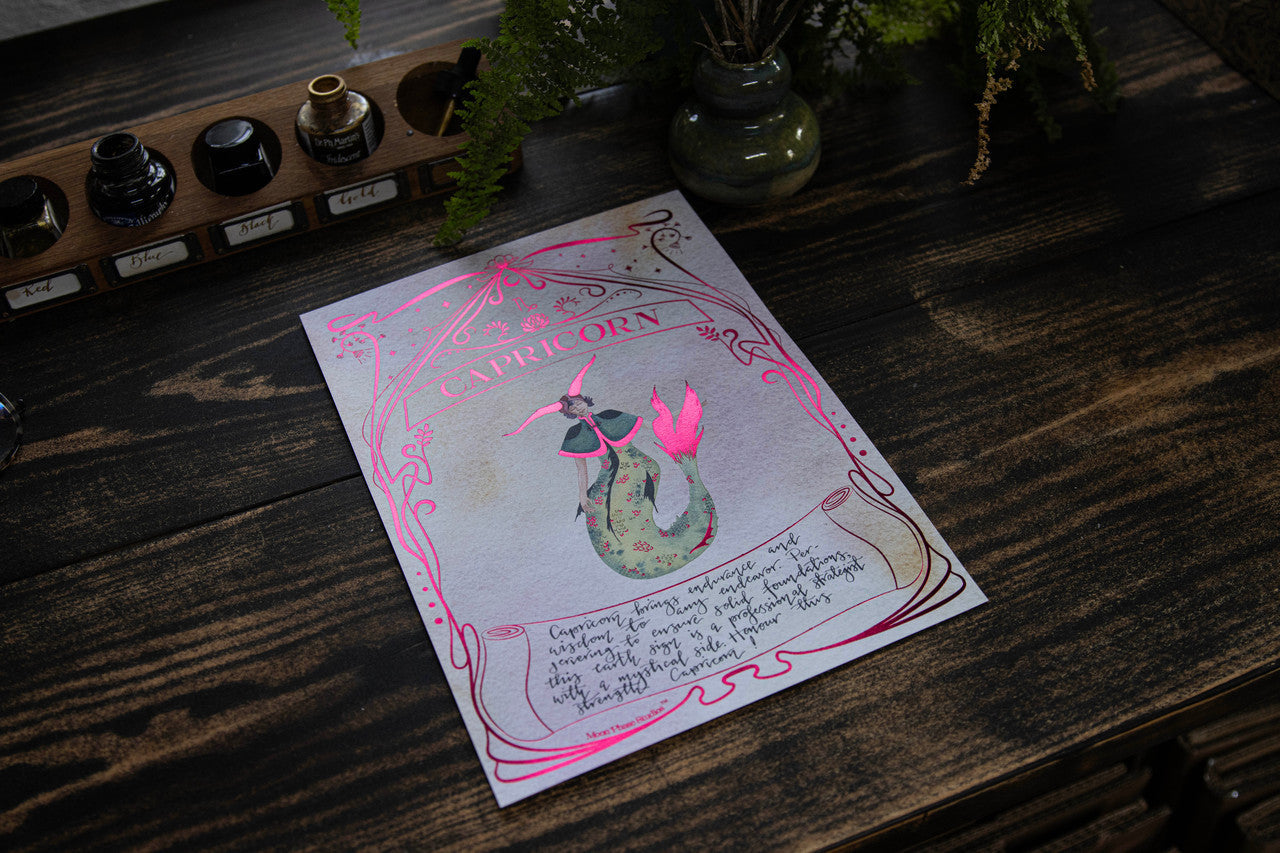 Dr. Ph. Martin's
Iridescent
Red
Blue
Black
Gold
CAPRICORN
Capricorn brings endurance and
wisdom to any endeavor. Per-
severing to ensure solid foundations,
this earth sign is a professional strategist
with a mystical side. Honour this
strength Capricorn!
Moon Phase Studios™